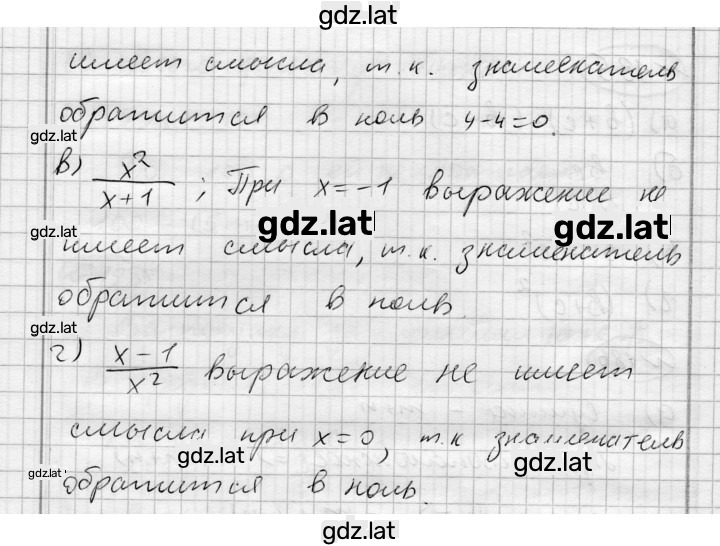 gdz.lat
имеет смысла, т.к. знаменатель
обратится в ноль 4-4=0.
gdz.lat
в) x²/(x+1); При x=-1 выражение не
gdz.lat gdz.lat gdz.lat
имеет смысла, т.к. знаменатель
обратится в ноль.
gdz.lat
г) (x-1)/x² выражение не имеет
смысла при x=0, т.к знаменатель
gdz.lat gdz.lat gdz.lat
обратится в ноль.
gdz.lat